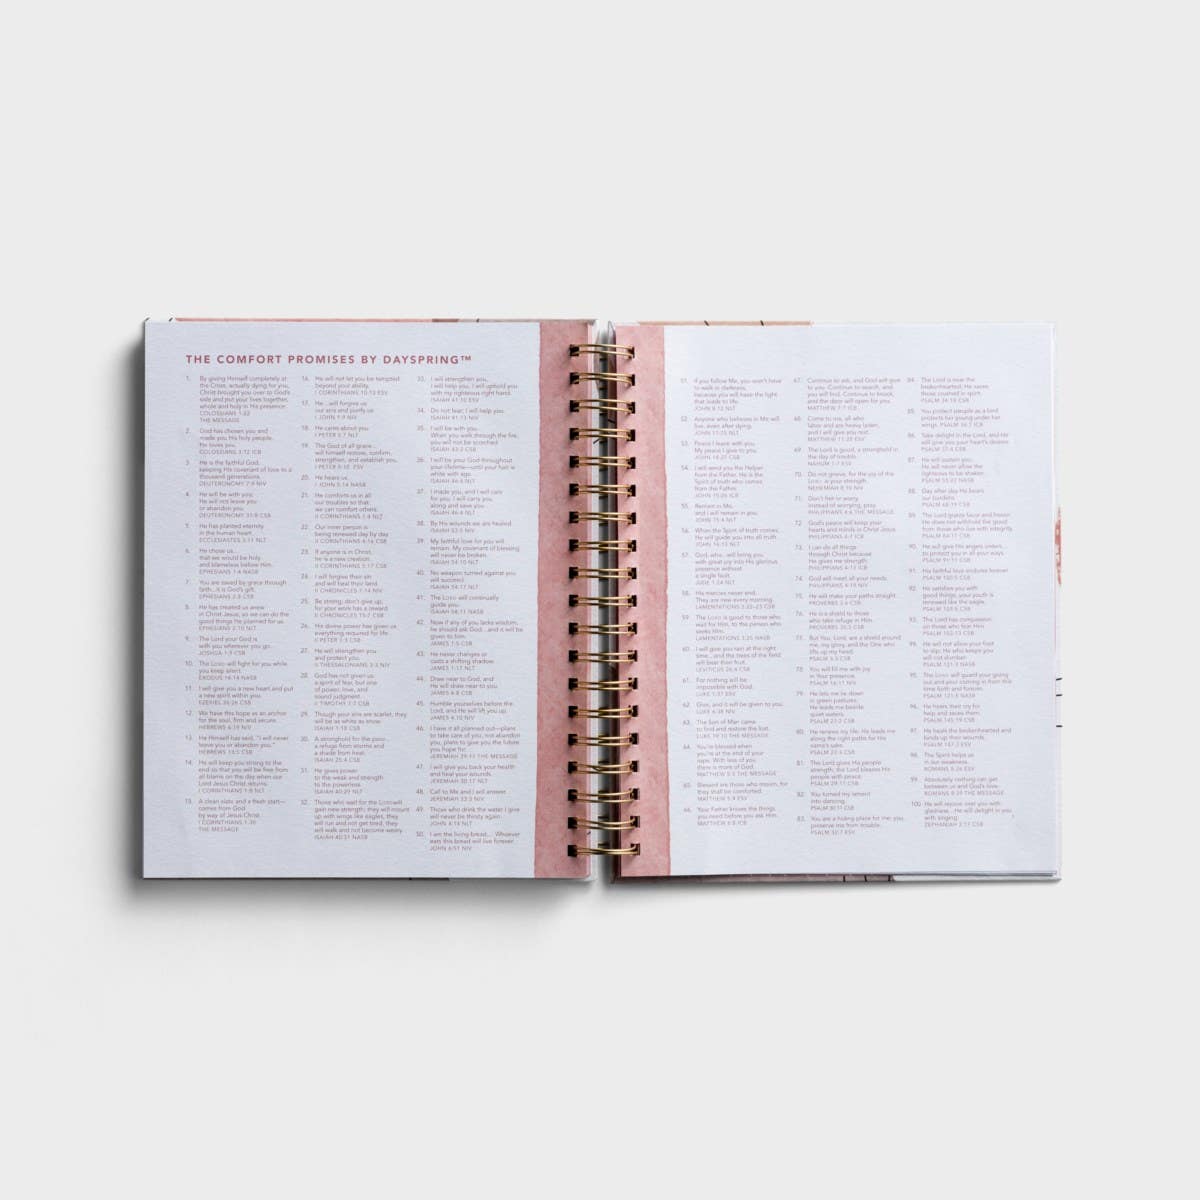 THE COMFORT PROMISES BY DAYSPRING™
1. By giving Himself completely at
the Cross, actually dying for you,
Christ brought you over to God's
side and put your lives together,
whole and holy in His presence.
COLOSSIANS 1:22
THE MESSAGE
2. God has chosen you and
made you His holy people.
He loves you.
COLOSSIANS 3:12 ICB
3. He is the faithful God,
keeping His covenant of love to a
thousand generations.
DEUTERONOMY 7:9 NIV
4. He will be with you;
He will not leave you
or abandon you.
DEUTERONOMY 31:8 CSB
5. He has planted eternity
in the human heart.
ECCLESIASTES 3:11 NLT
6. He chose us...
that we would be holy
and blameless before Him.
EPHESIANS 1:4 NASB
7. You are saved by grace through
faith...it is God's gift.
EPHESIANS 2:8 CSB
8. He has created us anew
in Christ Jesus, so we can do the
good things He planned for us.
EPHESIANS 2:10 NLT
9. The Lord your God is
with you wherever you go.
JOSHUA 1:9 CSB
10. The LORD will fight for you while
you keep silent.
EXODUS 14:14 NASB
11. I will give you a new heart and put
a new spirit within you.
EZEKIEL 36:26 CSB
12. We have this hope as an anchor
for the soul, firm and secure.
HEBREWS 6:19 NIV
13. He Himself has said, "I will never
leave you or abandon you."
HEBREWS 13:5 CSB
14. He will keep you strong to the
end so that you will be free from
all blame on the day when our
Lord Jesus Christ returns.
I CORINTHIANS 1:8 NLT
15. A clean slate and a fresh start—
comes from God
by way of Jesus Christ.
I CORINTHIANS 1:30
THE MESSAGE
16. He will not let you be tempted
beyond your ability.
I CORINTHIANS 10:13 ESV
17. He...will forgive us
our sins and purify us.
I JOHN 1:9 NIV
18. He cares about you.
I PETER 5:7 NLT
19. The God of all grace...
will himself restore, confirm,
strengthen, and establish you.
I PETER 5:10 ESV
20. He hears us.
I JOHN 5:14 NASB
21. He comforts us in all
our troubles so that
we can comfort others.
II CORINTHIANS 1:4 NLT
22. Our inner person is
being renewed day by day.
II CORINTHIANS 4:16 CSB
23. If anyone is in Christ,
he is a new creation.
II CORINTHIANS 5:17 CSB
24. I will forgive their sin
and will heal their land.
II CHRONICLES 7:14 NIV
25. Be strong; don't give up,
for your work has a reward.
II CHRONICLES 15:7 CSB
26. His divine power has given us
everything required for life.
II PETER 1:3 CSB
27. He will strengthen you
and protect you.
II THESSALONIANS 3:3 NIV
28. God has not given us
a spirit of fear, but one
of power, love, and
sound judgment.
II TIMOTHY 1:7 CSB
29. Though your sins are scarlet, they
will be as white as snow.
ISAIAH 1:18 CSB
30. A stronghold for the poor...
a refuge from storms and
a shade from heat.
ISAIAH 25:4 CSB
31. He gives power
to the weak and strength
to the powerless.
ISAIAH 40:29 NLT
32. Those who wait for the LORD will
gain new strength; they will mount
up with wings like eagles, they
will run and not get tired, they
will walk and not become weary.
ISAIAH 40:31 NASB
33. I will strengthen you,
I will help you, I will uphold you
with my righteous right hand.
ISAIAH 41:10 ESV
34. Do not fear; I will help you.
ISAIAH 41:13 NIV
35. I will be with you.
When you walk through the fire,
you will not be scorched.
ISAIAH 43:2 CSB
36. I will be your God throughout
your lifetime—until your hair is
white with age.
ISAIAH 46:4 NLT
37. I made you, and I will care
for you. I will carry you
along and save you.
ISAIAH 46:4 NLT
38. By His wounds we are healed.
ISAIAH 53:5 NIV
39. My faithful love for you will
remain. My covenant of blessing
will never be broken.
ISAIAH 54:10 NLT
40. No weapon turned against you
will succeed.
ISAIAH 54:17 NLT
41. The LORD will continually
guide you.
ISAIAH 58:11 NASB
42. Now if any of you lacks wisdom,
he should ask God...and it will be
given to him.
JAMES 1:5 CSB
43. He never changes or
casts a shifting shadow.
JAMES 1:17 NLT
44. Draw near to God, and
He will draw near to you.
JAMES 4:8 CSB
45. Humble yourselves before the
Lord, and He will lift you up.
JAMES 4:10 NIV
46. I have it all planned out—plans
to take care of you, not abandon
you, plans to give you the future
you hope for.
JEREMIAH 29:11 THE MESSAGE
47. I will give you back your health
and heal your wounds.
JEREMIAH 30:17 NLT
48. Call to Me and I will answer.
JEREMIAH 33:3 NIV
49. Those who drink the water I give
will never be thirsty again.
JOHN 4:14 NLT
50. I am the living bread.... Whoever
eats this bread will live forever.
JOHN 6:51 NIV
51. If you follow Me, you won't have
to walk in darkness,
because you will have the light
that leads to life.
JOHN 8:12 NLT
52. Anyone who believes in Me will
live, even after dying.
JOHN 11:25 NLT
53. Peace I leave with you.
My peace I give to you.
JOHN 14:27 CSB
54. I will send you the Helper
from the Father. He is the
Spirit of truth who comes
from the Father.
JOHN 15:26 ICB
55. Remain in Me,
and I will remain in you.
JOHN 15:4 NLT
56. When the Spirit of truth comes,
He will guide you into all truth.
JOHN 16:13 NLT
57. God, who...will bring you
with great joy into His glorious
presence without
a single fault.
JUDE 1:24 NLT
58. His mercies never end.
They are new every morning.
LAMENTATIONS 3:22–23 CSB
59. The LORD is good to those who
wait for Him, to the person who
seeks Him.
LAMENTATIONS 3:25 NASB
60. I will give you rain at the right
time...and the trees of the field
will bear their fruit.
LEVITICUS 26:4 CSB
61. For nothing will be
impossible with God.
LUKE 1:37 ESV
62. Give, and it will be given to you.
LUKE 6:38 NIV
63. The Son of Man came
to find and restore the lost.
LUKE 19:10 THE MESSAGE
64. You're blessed when
you're at the end of your
rope. With less of you
there is more of God.
MATTHEW 5:3 THE MESSAGE
65. Blessed are those who mourn, for
they shall be comforted.
MATTHEW 5:4 ESV
66. Your Father knows the things
you need before you ask Him.
MATTHEW 6:8 ICB
67. Continue to ask, and God will give
to you. Continue to search, and
you will find. Continue to knock,
and the door will open for you.
MATTHEW 7:7 ICB
68. Come to me, all who
labor and are heavy laden,
and I will give you rest.
MATTHEW 11:28 ESV
69. The Lord is good, a stronghold in
the day of trouble.
NAHUM 1:7 ESV
70. Do not grieve, for the joy of the
LORD is your strength.
NEHEMIAH 8:10 NIV
71. Don't fret or worry.
Instead of worrying, pray.
PHILIPPIANS 4:6 THE MESSAGE
72. God's peace will keep your
hearts and minds in Christ Jesus.
PHILIPPIANS 4:7 ICB
73. I can do all things
through Christ because
He gives me strength.
PHILIPPIANS 4:13 ICB
74. God will meet all your needs.
PHILIPPIANS 4:19 NIV
75. He will make your paths straight.
PROVERBS 3:6 CSB
76. He is a shield to those
who take refuge in Him.
PROVERBS 30:5 CSB
77. But You, Lord, are a shield around
me, my glory, and the One who
lifts up my head.
PSALM 3:3 CSB
78. You will fill me with joy
in Your presence.
PSALM 16:11 NIV
79. He lets me lie down
in green pastures;
He leads me beside
quiet waters.
PSALM 23:2 CSB
80. He renews my life; He leads me
along the right paths for His
name's sake.
PSALM 23:3 CSB
81. The Lord gives His people
strength; the Lord blesses His
people with peace.
PSALM 29:11 CSB
82. You turned my lament
into dancing.
PSALM 30:11 CSB
83. You are a hiding place for me; you
preserve me from trouble.
PSALM 32:7 ESV
84. The Lord is near the
brokenhearted; He saves
those crushed in spirit.
PSALM 34:18 CSB
85. You protect people as a bird
protects her young under her
wings. PSALM 36:7 ICB
86. Take delight in the Lord, and He
will give you your heart's desires.
PSALM 37:4 CSB
87. He will sustain you;
He will never allow the
righteous to be shaken.
PSALM 55:22 NASB
88. Day after day He bears
our burdens.
PSALM 68:19 CSB
89. The Lord grants favor and honor;
He does not withhold the good
from those who live with integrity.
PSALM 84:11 CSB
90. He will give His angels orders...
to protect you in all your ways.
PSALM 91:11 CSB
91. His faithful love endures forever.
PSALM 100:5 CSB
92. He satisfies you with
good things; your youth is
renewed like the eagle.
PSALM 103:5 CSB
93. The Lord has compassion
on those who fear Him.
PSALM 103:13 CSB
94. He will not allow your foot
to slip; He who keeps you
will not slumber.
PSALM 121:3 NASB
95. The LORD will guard your going
out and your coming in from this
time forth and forever.
PSALM 121:8 NASB
96. He hears their cry for
help and saves them.
PSALM 145:19 CSB
97. He heals the brokenhearted and
binds up their wounds.
PSALM 147:3 ESV
98. The Spirit helps us
in our weakness.
ROMANS 8:26 ESV
99. Absolutely nothing can get
between us and God's love.
ROMANS 8:39 THE MESSAGE
100. He will rejoice over you with
gladness....He will delight in you
with singing.
ZEPHANIAH 3:17 CSB